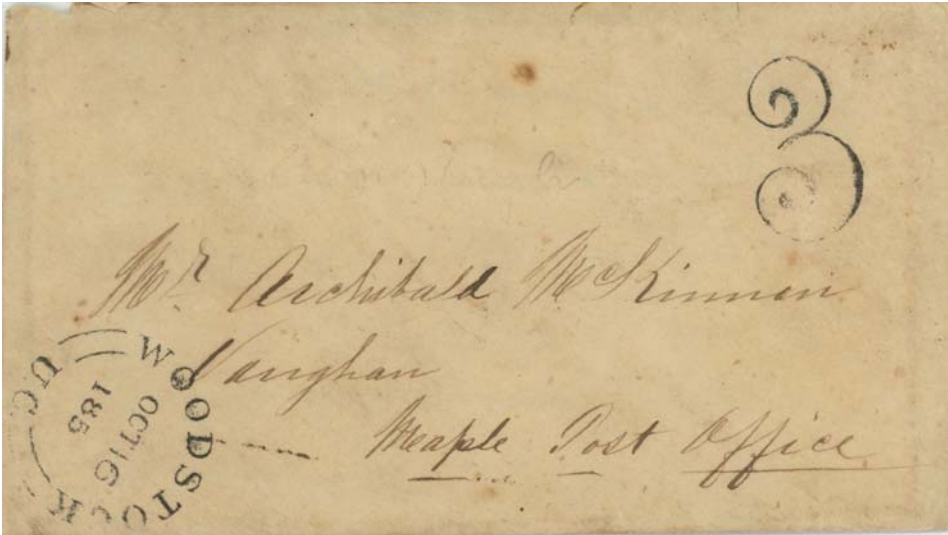 3
Mr Archibald McKinnon
Vaughan
Maple Post Office
WOODSTOCK
UC
OCT 16
185